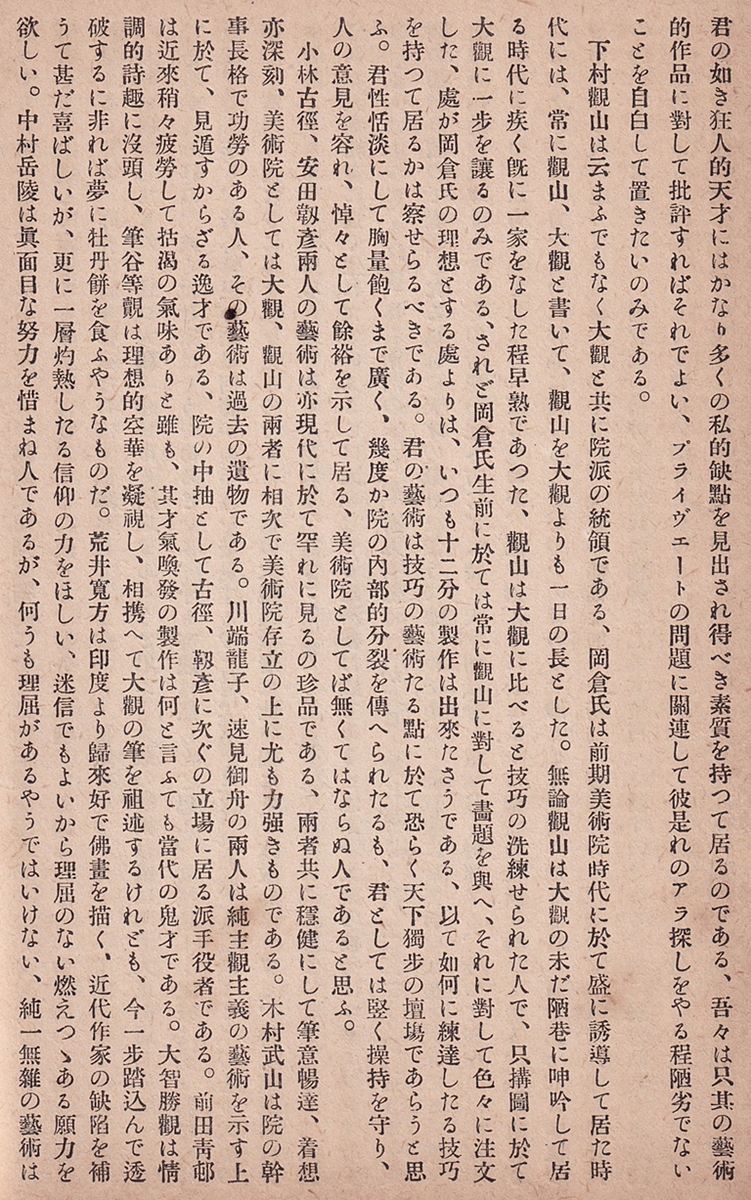 君の如き狂人的天才にはかなり多くの私的缺點を見出され得べき素質を持つて居るのである、吾々は只其の藝術
的作品に對して批評すればそれでよい、プライヴエートの問題に關連して彼是れのアラ探しをやる程陋劣でない
ことを自白して置きたいのみである。
下村觀山は云まふでもなく大觀と共に院派の統領である、岡倉氏は前期美術院時代に於て盛に誘導して居た時
代には、常に觀山、大觀と書いて、觀山を大觀よりも一日の長とした。無論觀山は大觀の未だ陋巷に呻吟して居
る時代に疾く旣に一家をなした程早熟であつた、觀山は大觀に比べると技巧の洗練せられた人で、只搆圖に於て
大觀に一步を讓るのみである、されど岡倉氏生前に於ては常に觀山に對して畵題を與へ、それに對して色々に注文
した、處が岡倉氏の理想とする處よりは、いつも十二分の製作は出來たさうである、以て如何に練達したる技巧
を持つて居るかは察せらるべきである。君の藝術は技巧の藝術たる點に於て恐らく天下獨步の壇塲であらうと思
ふ。君性恬淡にして胸量飽くまで廣く、幾度か院の內部的分裂を傳へられたるも、君としては竪く操持を守り、
人の意見を容れ、悼々として餘裕を示して居る、美術院としてば無くてはならぬ人であると思ふ。
小林古徑、安田靱彥兩人の藝術は亦現代に於て罕れに見るの珍品である、兩者共に穩健にして筆意暢達、着想
亦深刻、美術院としては大觀、觀山の兩者に相次で美術院存立の上に尤も力强きものである。木村武山は院の幹
事長格で功勞のある人、その藝術は過去の遺物である。川端龍子、速見御舟の兩人は純主觀主義の藝術を示す上
に於て、見遁すからざる逸才である、院の中抽として古徑、靱彥に次ぐの立場に居る派手役者である。前田靑邨
は近來稍々疲勞して括渴の氣味ありと雖も、其才氣喚發の製作は何と言ふても當代の鬼才である。大智勝觀は情
調的詩趣に沒頭し、筆谷等觀は理想的空華を凝視し、相携へて大觀の筆を祖述するけれども、今一步踏込んで透
破するに非れば夢に牡丹餅を食ふやうなものだ。荒井寬方は印度より歸來好で佛畫を描く、近代作家の缺陷を補
うて甚だ喜ばしいが、更に一層灼熱したる信仰の力をほしい、迷信でもよいから理屈のない燃えつゝある願力を
欲しい。中村岳陵は眞面目な努力を惜まね人であるが、何うも理屈があるやうではいけない、純一無雜の藝術は